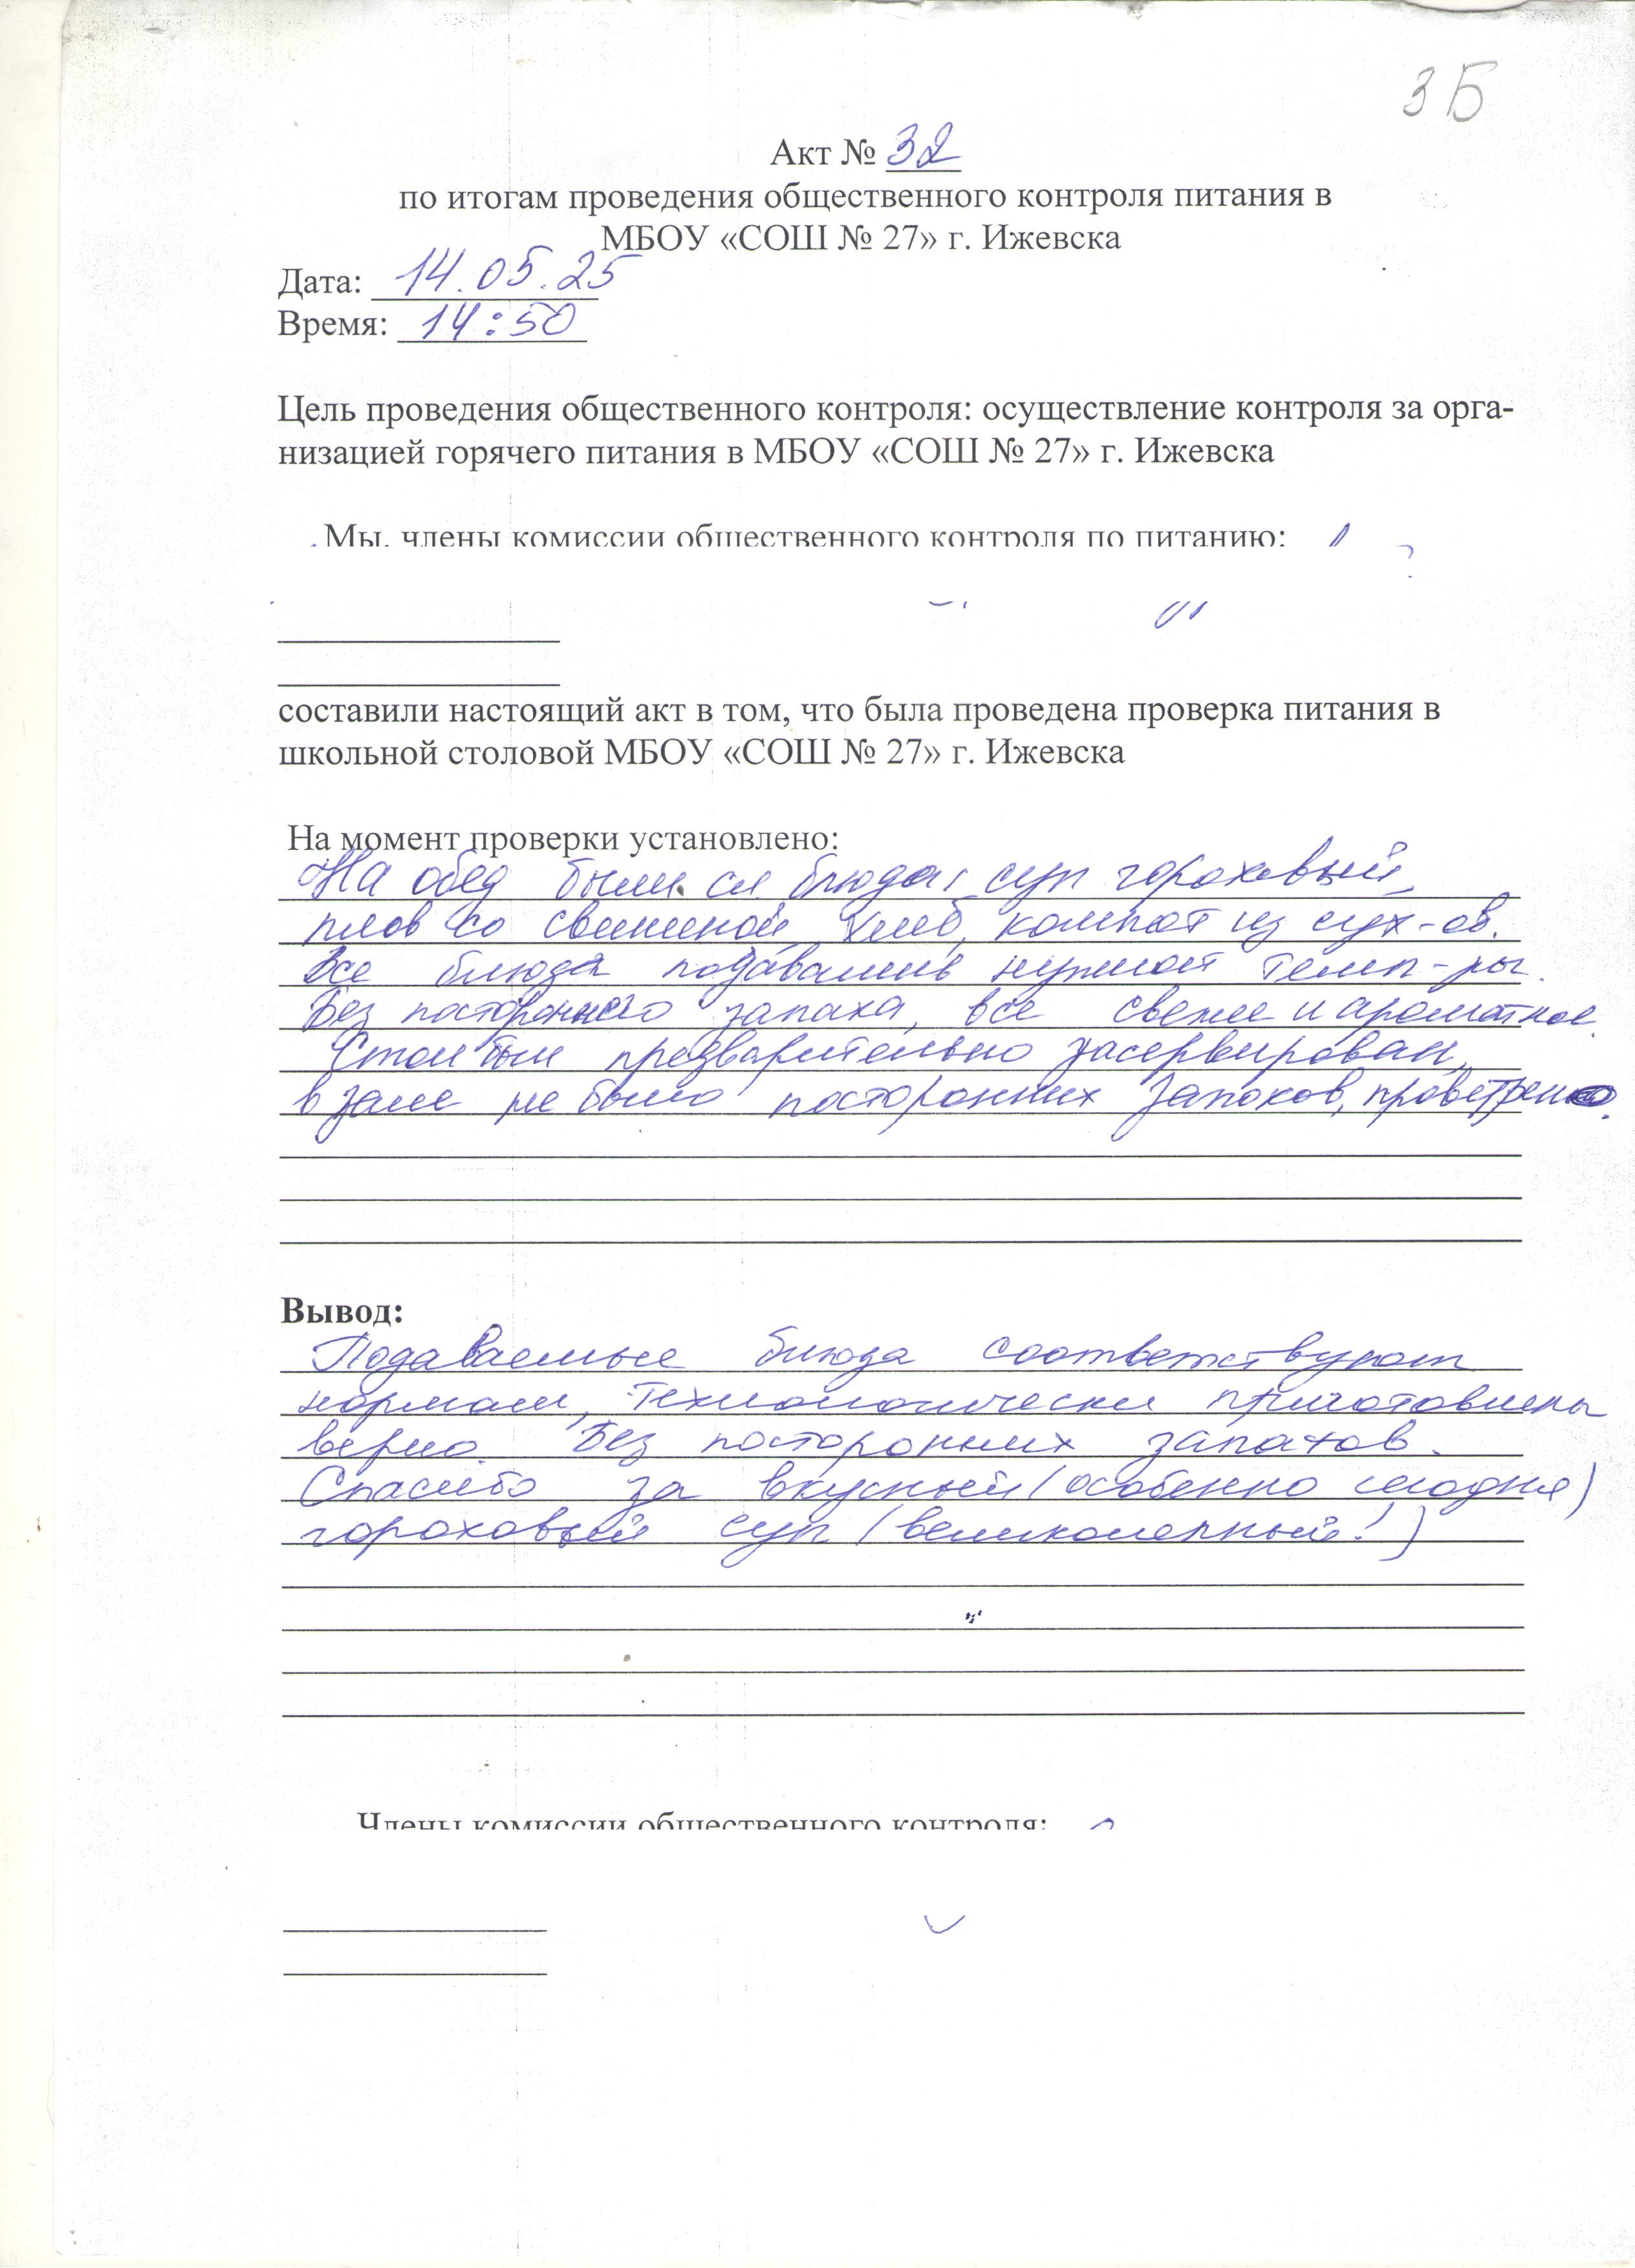 3Б
Акт № 32
по итогам проведения общественного контроля питания в
МБОУ «СОШ № 27» г. Ижевска
Дата: 14.05.25
Время: 14:50
Цель проведения общественного контроля: осуществление контроля за орга-
низацией горячего питания в МБОУ «СОШ № 27» г. Ижевска
Мы, члены комиссии общественного контроля по питанию:
составили настоящий акт в том, что была проведена проверка питания в
школьной столовой МБОУ «СОШ № 27» г. Ижевска
На момент проверки установлено:
На обед были сл. блюда: суп гороховый,
плов со свининой, хлеб, компот из сух-ов.
Все блюда подавались нужной темп-ры.
Без постороннего запаха, все свежее и ароматное.
Стол был предварительно засервирован,
в зале не было посторонних запахов, проветрено.
Вывод:
Подаваемые блюда соответствуют
нормам, технологически приготовлены
верно. Без посторонних запахов.
Спасибо за вкусный (особенно сегодня)
гороховый суп (великолепный!)
Члены комиссии общественного контроля: